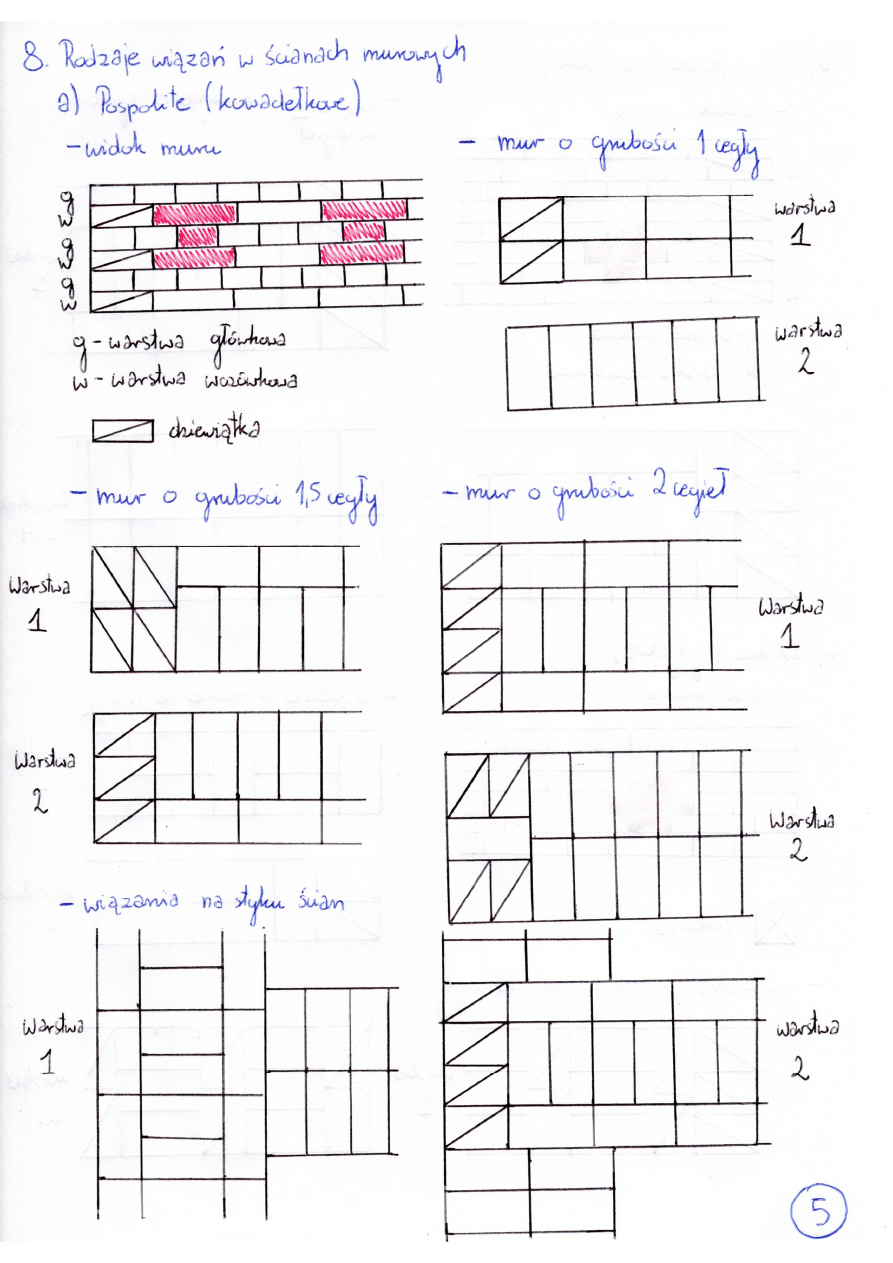 8. Rodzaje wiązań w ścianach murowych
a) Pospolite (kowadełkowe)
- widok muru
g
w
g
w
g
w
g - warstwa główkowa
w - warstwa wozówkowa
dziewiątka
- mur o grubości 1 cegły
warstwa
1
warstwa
2
- mur o grubości 1,5 cegły
Warstwa
1
Warstwa
2
- mur o grubości 2 cegieł
Warstwa
1
Warstwa
2
- wiązania na styku ścian
Warstwa
1
Warstwa
2
5